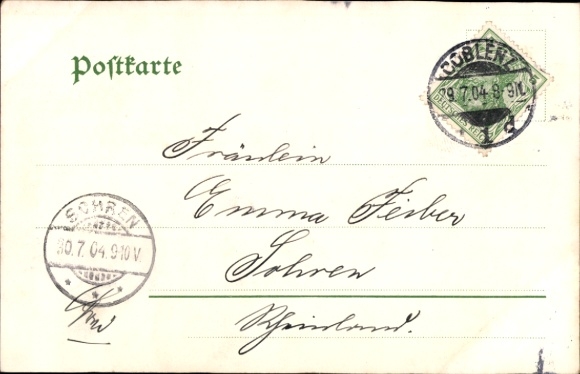 Postkarte
COBLENZ
29.7.04.8-9N.
* 1 d
DEUTSCHES REICH
Fräulein
Emma Feiber
Sohren
Rheinland.
SOHREN
30.7.04.9-10V.
* * *